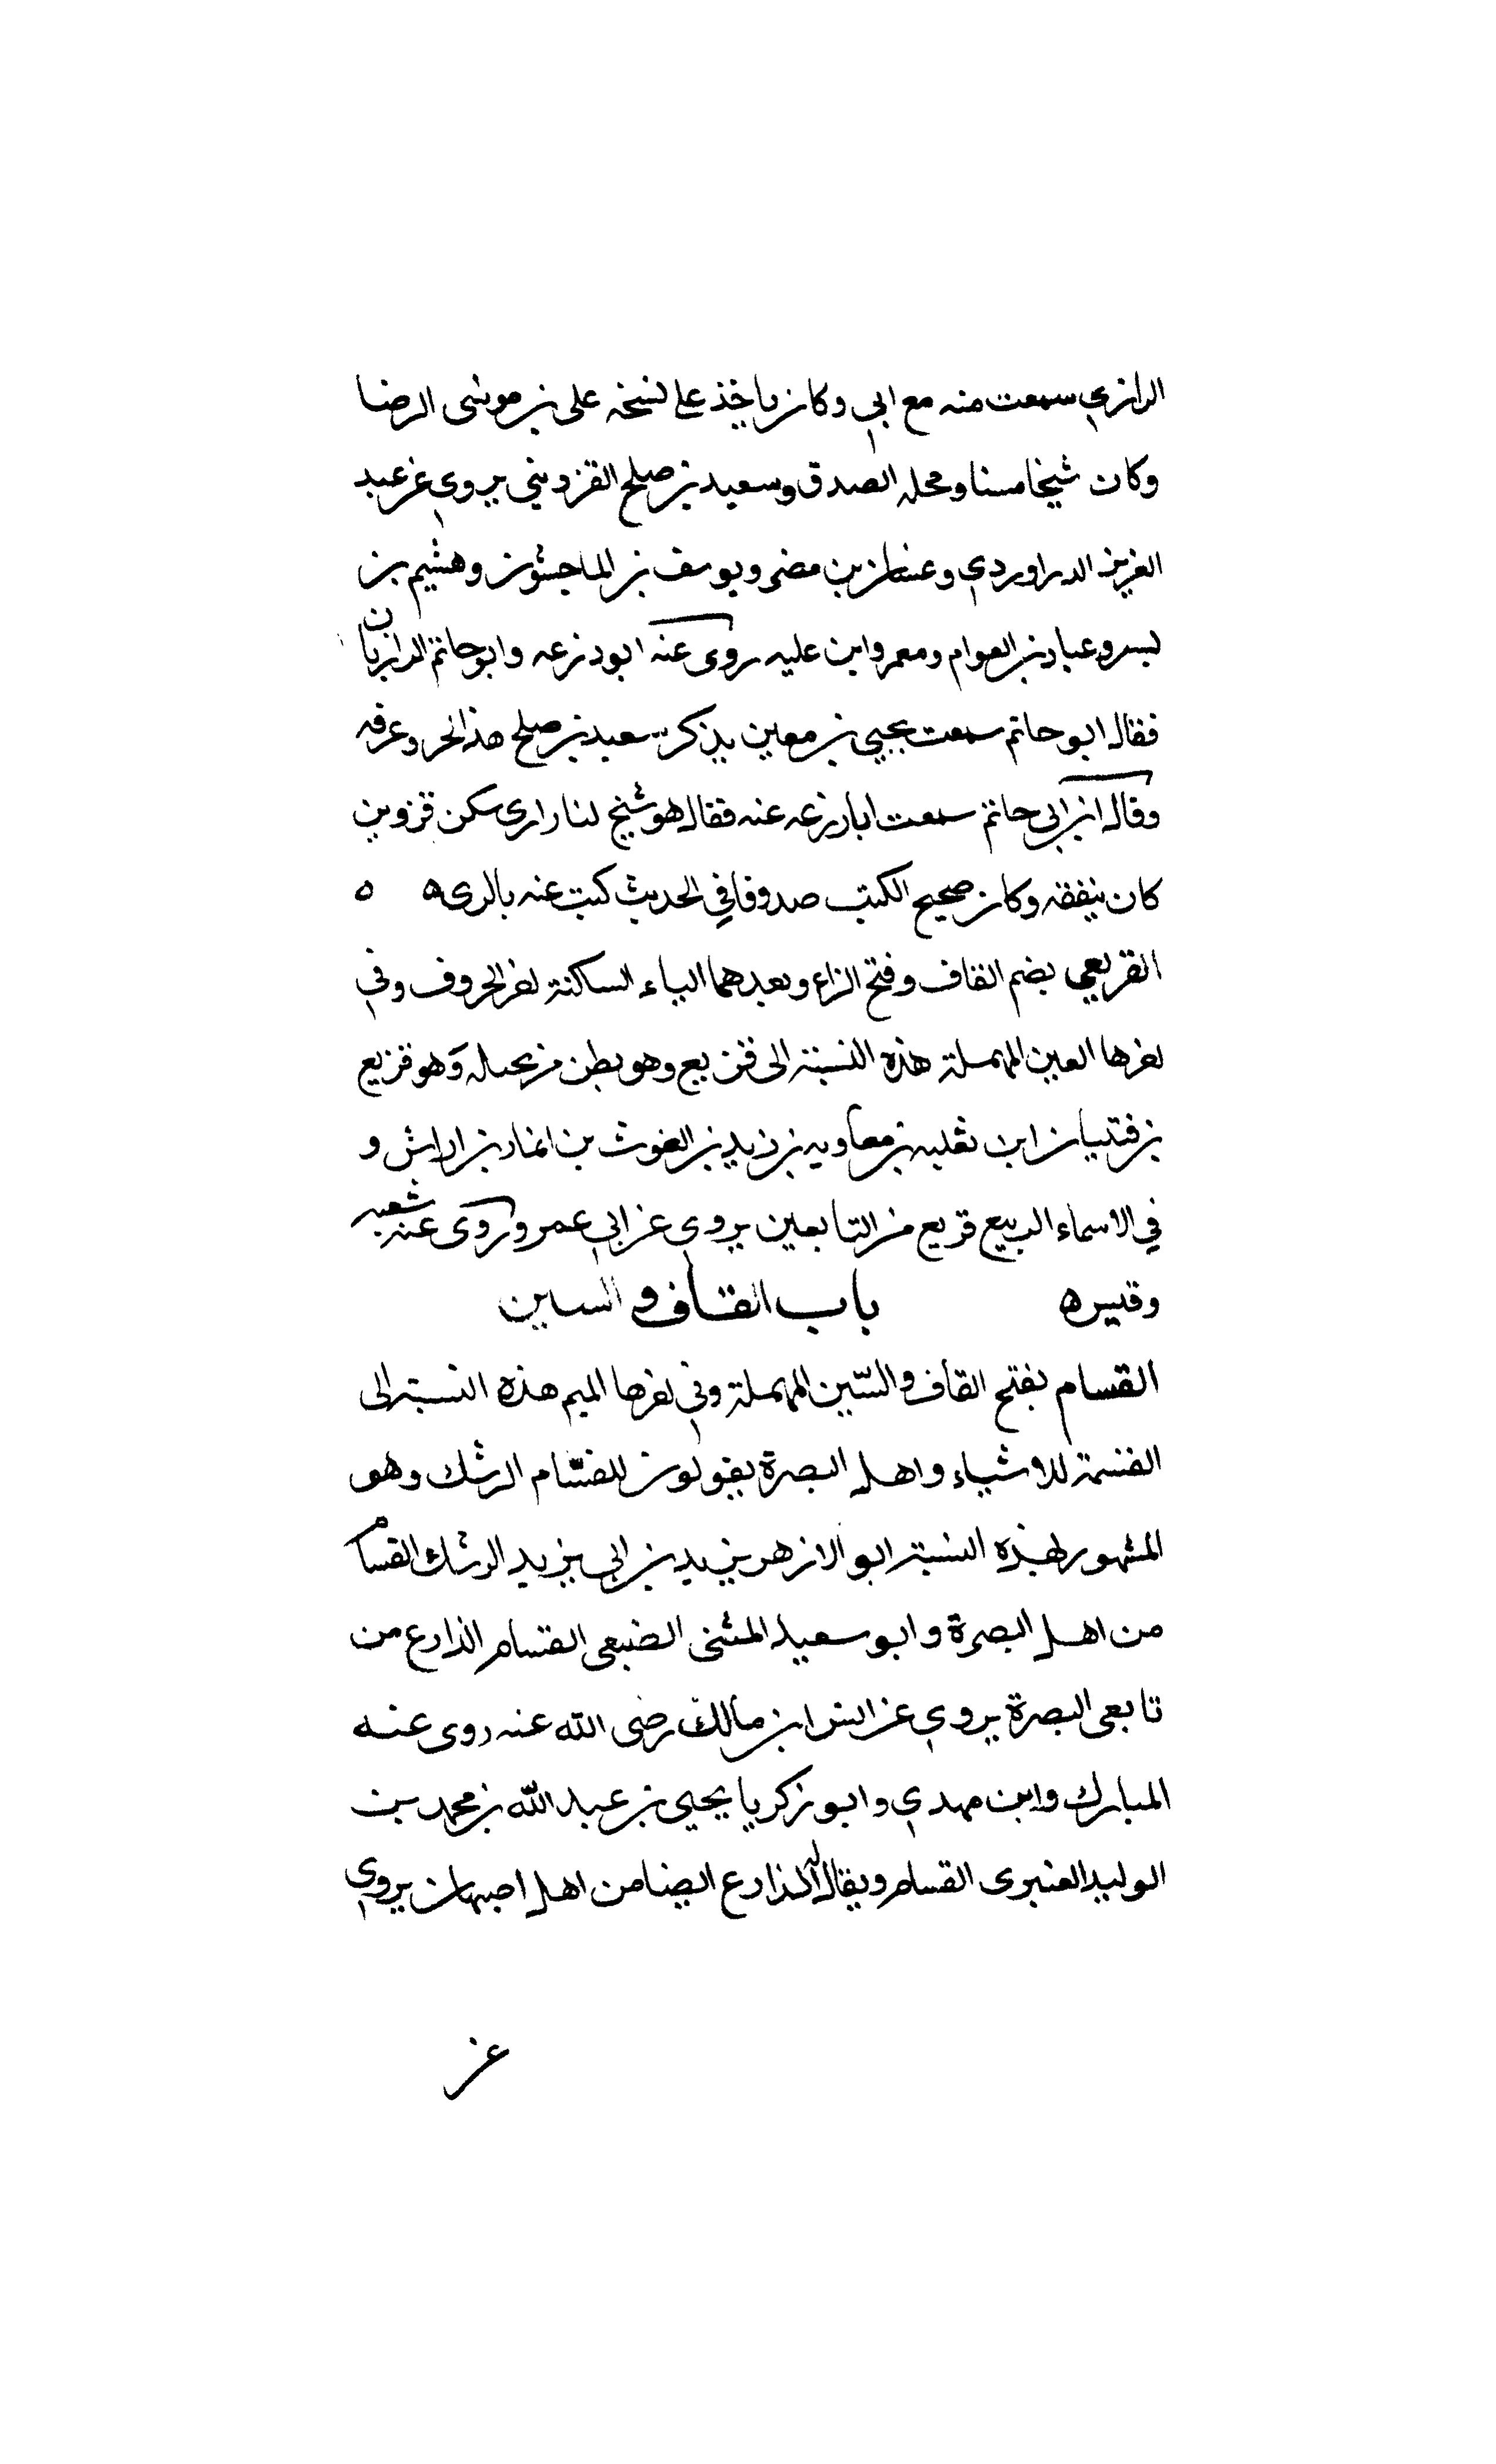 الرازي سمعت منه مع ابي وكان ياخذ على نسخه على بن موسى الرضا
وكان شيخا مسنا ومحله الصدق وسعيد بن صلح القزويني يروي عن عبد
العزيز الدراوردي وغسان بن مضر ويوسف بن الماجشون وهشيم بن
بسر وعباد بن العوام ومعمر وابن عليه روى عنه ابو زرعه وابو حاتم الرازيان
فقال ابو حاتم سمعت يحيي بن معين يذكر سعيد بن صلح هذا وعرفه
وقال ابن ابي حاتم سمعت ابا زرعه عنه فقال هو شيخ لنا رازى سكن قزوين
كان يتفقه وكان صحيح الكتب صدوقا في الحديث كتبت عنه بالرى ه ه
القزيعي بضم القاف وفتح الزاء وبعدهما الياء الساكنة اخر الحروف وفي
اخرها العين المهملة هذه النسبة الى قزيع وهو بطن من بجيله وهو قزيع
بن فتيان ابن ثعلبه بن معاويه بن زيد بن الغوث بن انمار بن اراش و
في الاسماء الربيع قزيع من التابعين يروي عن ابي عمر وروى عنه شعبه
وقيس ه باب القاف والسين
القسام بفتح القاف والسّين المهملة وفي اخرها الميم هذه النسبة الى
القسمة للاشياء واهل البصرة يقولون للقسّام الرشك وهو
المشهور لهذه النسبة ابو الازهر يزيد بن ابي يزيد الرشك القسام
من اهل البصرة وابو سعيد المثنى الضبعى القسام الذارع من
تابعى البصرة يروي عن انس ابن مالك رضى الله عنه روى عنه
المبارك وابن مهدي وابو زكريا يحيى بن عبد الله بن محمد بن
الوليد العنبرى القسام ويقال له الذارع ايضا من اهل اصبهان يروي
عن